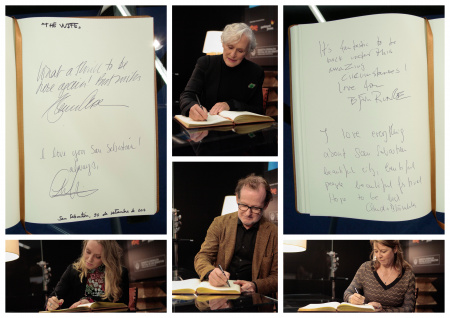 "THE WIFE"
What a thrill to be
here again! Best wishes
I love you San Sebastián!
always,
San Sebastián, 26 de setiembre de 2017
It's fantastic to be
back under this
amazing
circumstances
love from
Björn Runge
I love everything
about San Sebastian
beautiful city, beautiful
people beautiful festival
Hope to be back